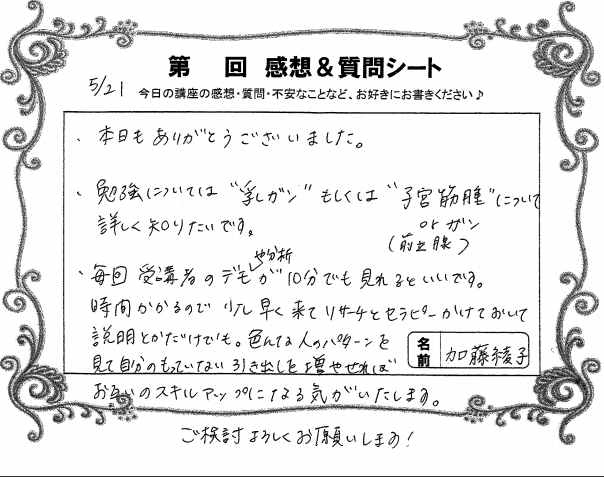 第　回 感想＆質問シート
5/21
今日の講座の感想・質問・不安なことなど、お好きにお書きください♪
、本日もありがとうございました。
、勉強については"乳ガン"もしくは"子宮筋腫"について
or ガン
詳しく知りたいです。
(前立腺)
や分析
、毎回 受講者のデモが10分でも見れるといいです。
時間かかるので少し早く来てリサーチとセラピーかけておいて
説明とかだけでも。色んな人のパターンを
見て自分のもっていない引き出しを増やせれば
名前 加藤綾子
お互いのスキルアップになる気がいたします。
ご検討よろしくお願いします！